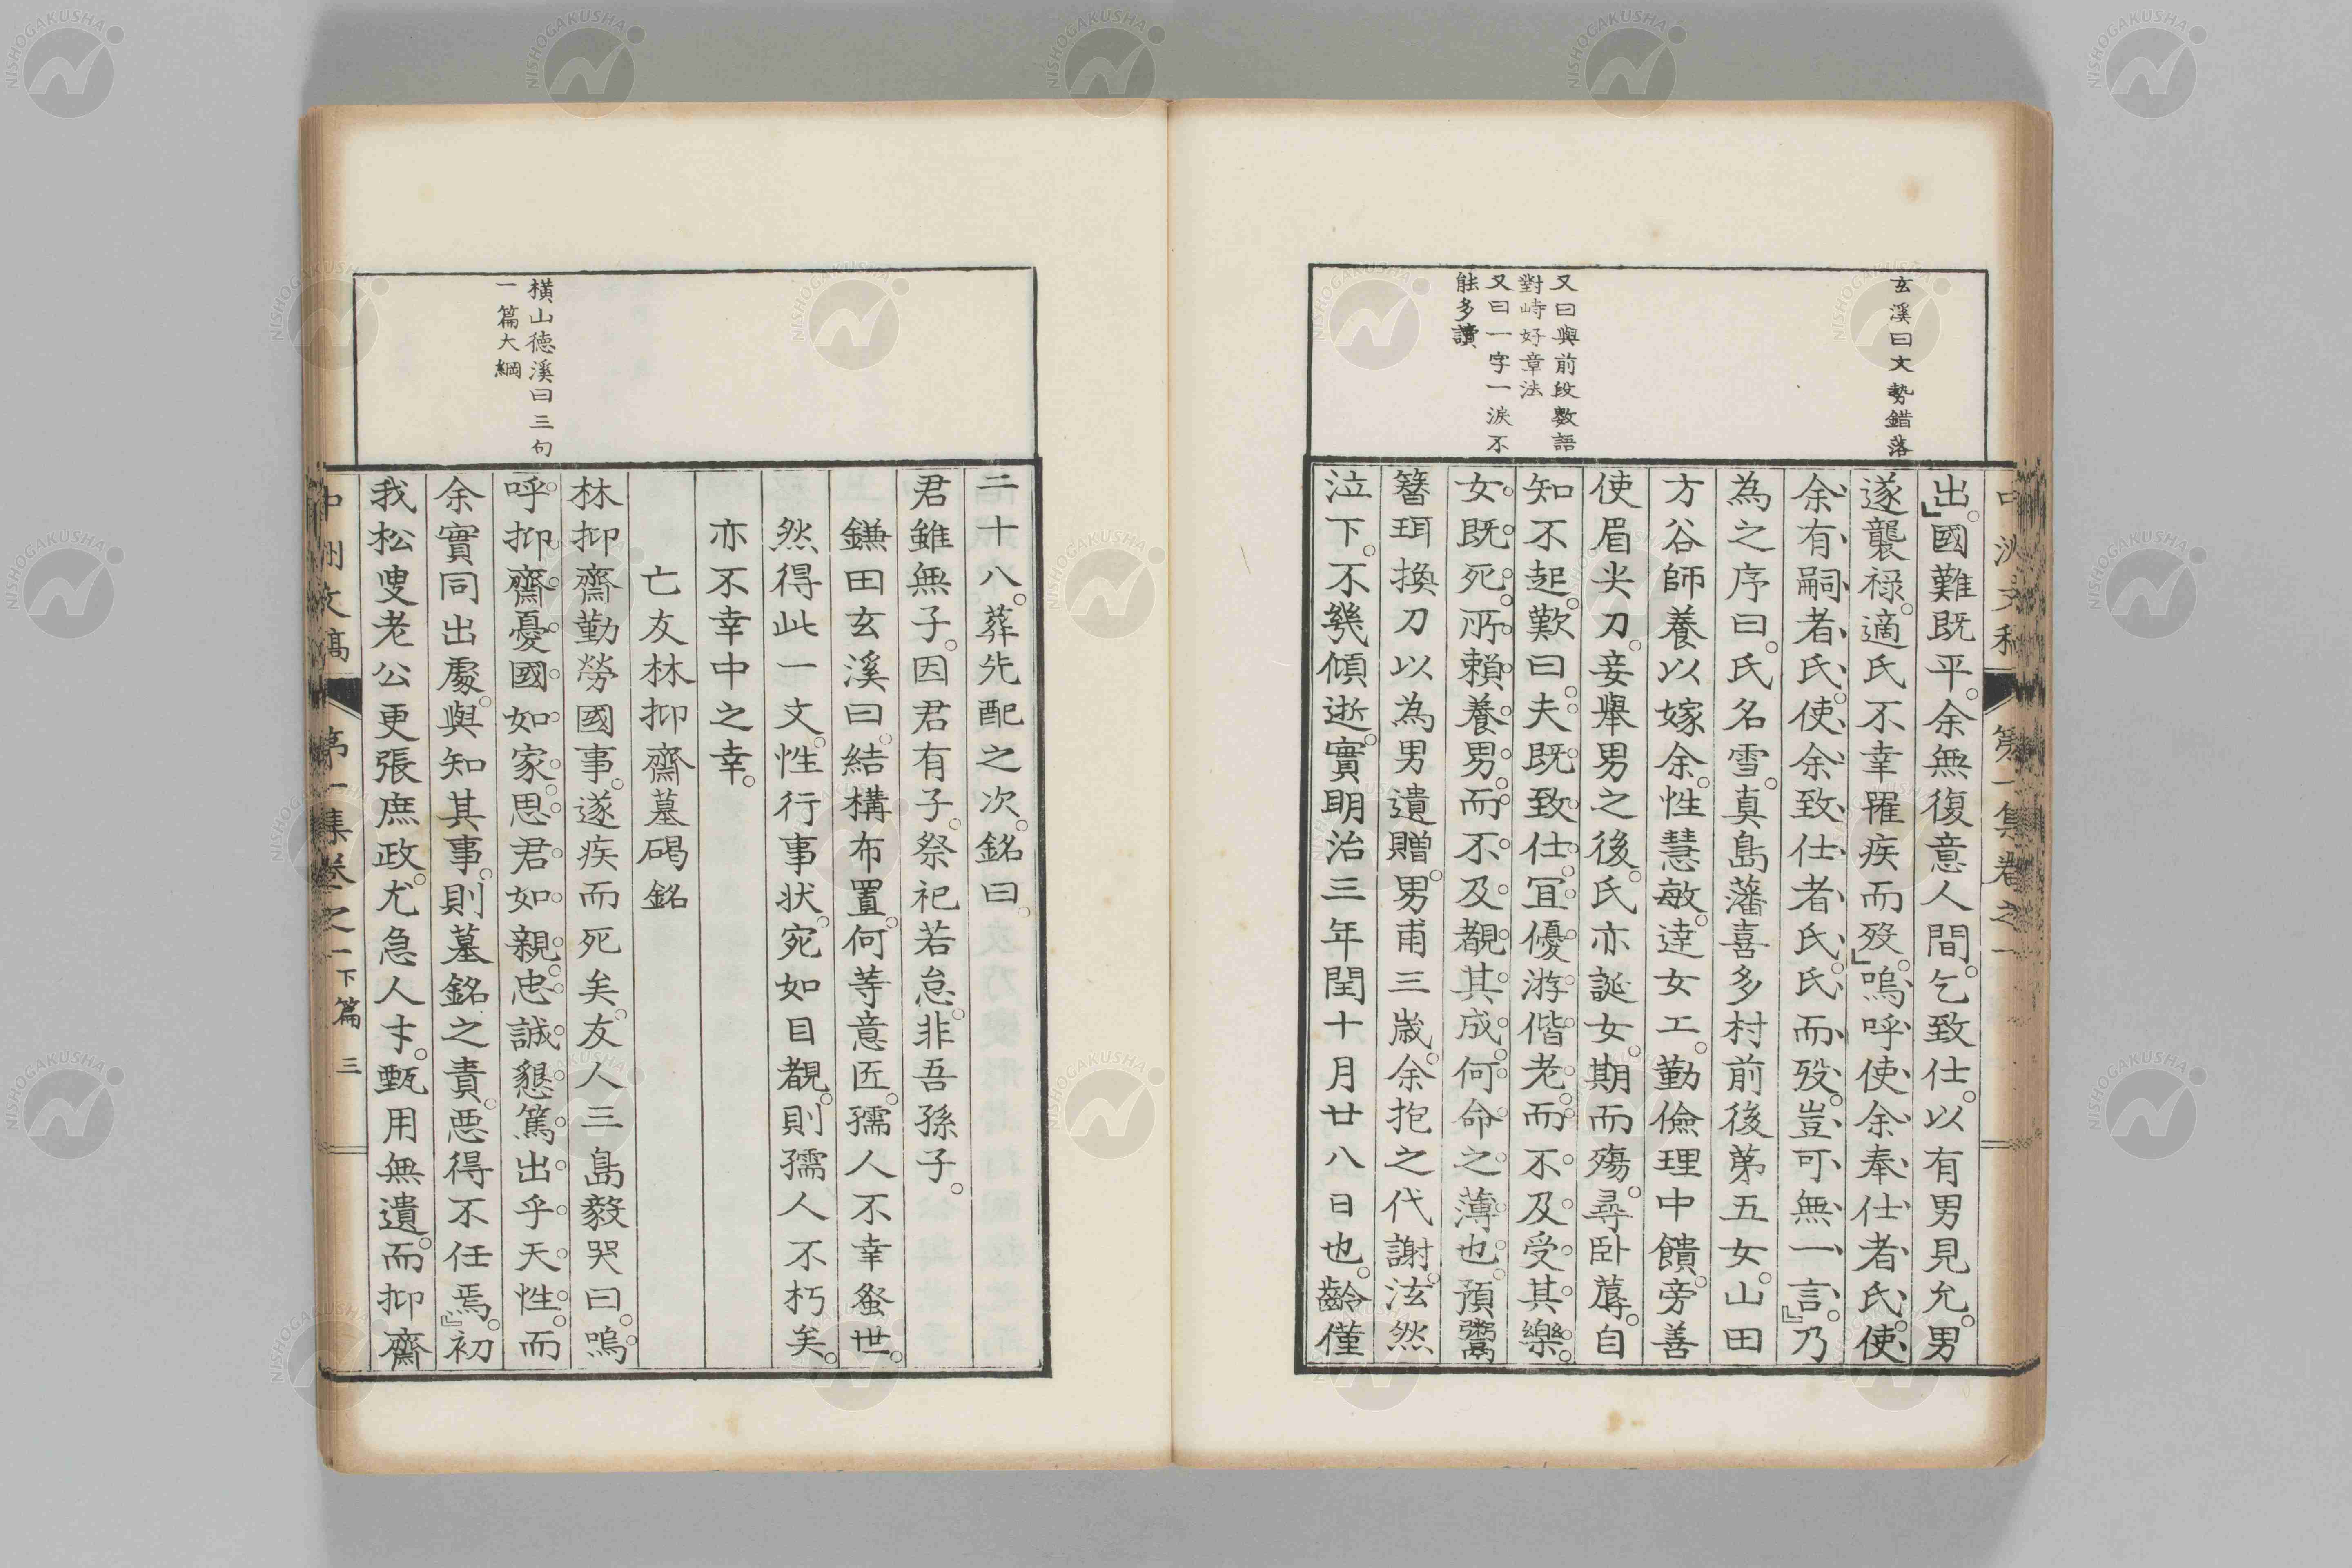 玄溪曰文勢錯落
又曰與前段數語
對峙好章法
又曰一字一淚不
能多讀
出。國難既平。余無復意人間。乞致仕。以有男見允。男
遂襲祿。適氏不幸罹疾而歿。」嗚呼使余奉仕者氏。使
余有嗣者氏。使余致仕者氏。氏而歿。豈可無一言。』乃
為之序曰。氏名雪。真島藩喜多村前後第五女。山田
方谷師養以嫁余。性慧敏。達女工。勤儉理中饋。旁善
使眉尖刀。妾舉男之後。氏亦誕女。期而殤。尋臥蓐。自
知不起。歎曰。夫既致仕。宜優游偕老。而不及受其樂。
女既死。所賴養男。而不及覩其成。何命之薄也。預鬻
簪珥換刀以為男遺贈。男甫三歲。余抱之代謝。泫然
泣下。不幾傾逝。實明治三年閏十月廿八日也。齡僅
中洲文稿 第一集卷之一
二十八。葬先配之次。銘曰。
君雖無子。因君有子。祭祀若怠。非吾孫子。
鎌田玄溪曰。結構布置。何等意匠。孺人不幸蚤世。
然得此一文。性行事狀。宛如目覩。則孺人不朽矣。
亦不幸中之幸。
亡友林抑齋墓碣銘
橫山德溪曰三句
一篇大綱
林抑齋勤勞國事。遂疾而死矣。友人三島毅哭曰。嗚
呼。抑齋。憂國如家。思君如親。忠誠懇篤。出乎天性。而
余實同出處。與知其事。則墓銘之責。惡得不任焉。』初
我松叟老公更張庶政。尤急人才。甄用無遺。而抑齋
中洲文稿 第一集卷之一 下篇 三